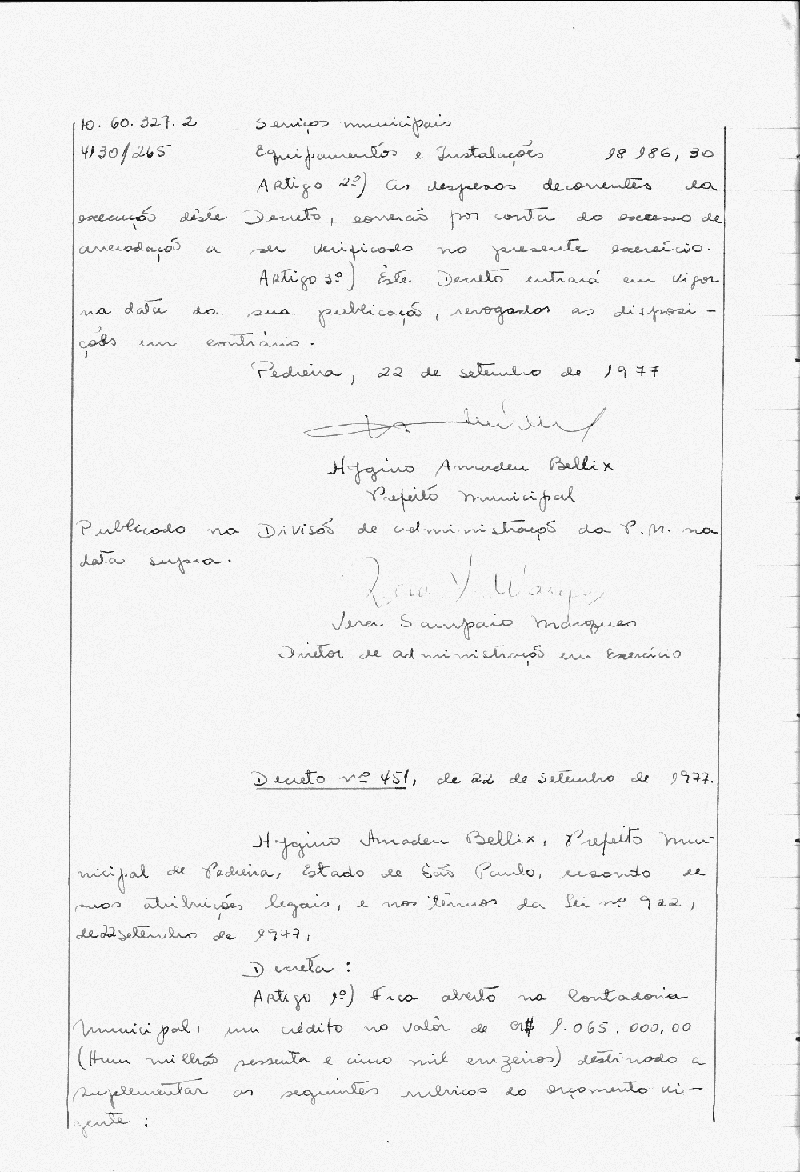 10.60.327.2 Serviços municipais
4130/265 Equipamentos e Instalações 18 186,30
Artigo 2º) As despesas decorrentes da
execução dêste Decreto, correrão por conta do excesso de
arrecadação a ser verificado no presente exercício.
Artigo 3º) Êste Decreto entrará em vigor
na data da sua publicação, revogados as disposi-
ções em contrário.
Pedreira, 22 de setembro de 1977
Hygino Amadeu Bellix
Prefeito Municipal
Publicado na Divisão de administração da P.M. na
data supra.
Vera Sampaio Marques
Diretor de administração em Exercício
Decreto nº 451, de 22 de setembro de 1977.
Hygino Amadeu Bellix, Prefeito Mu-
nicipal de Pedreira, Estado de São Paulo, usando de
suas atribuições legais, e nos têrmos da Lei nº 922,
de 22 setembro de 1977,
Decreta:
Artigo 1º) Fica aberto na Contadoria
Municipal, um crédito no valôr de CR$ 1.065.000,00
(Hum milhão sessenta e cinco mil cruzeiros) destinado a
suplementar as seguintes rubricas do orçamento vi-
gente: